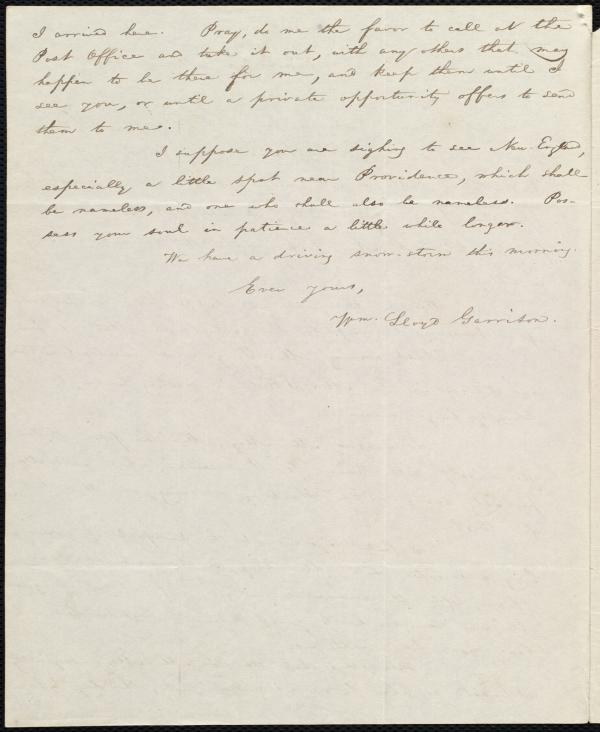 I arrived here. Pray, do me the favor to call at the
Post Office and take it out, with any others that may
happen to be there for me, and keep them until I
see you, or until a private opportunity offers to send
them to me.
I suppose you are sighing to see New-England,
especially a little spot near Providence, which shall
be nameless, and one who shall also be nameless. Pos-
sess your soul in patience a little while longer.
We have a driving snow-storm this morning.
Ever yours,
Wm. Lloyd Garrison.